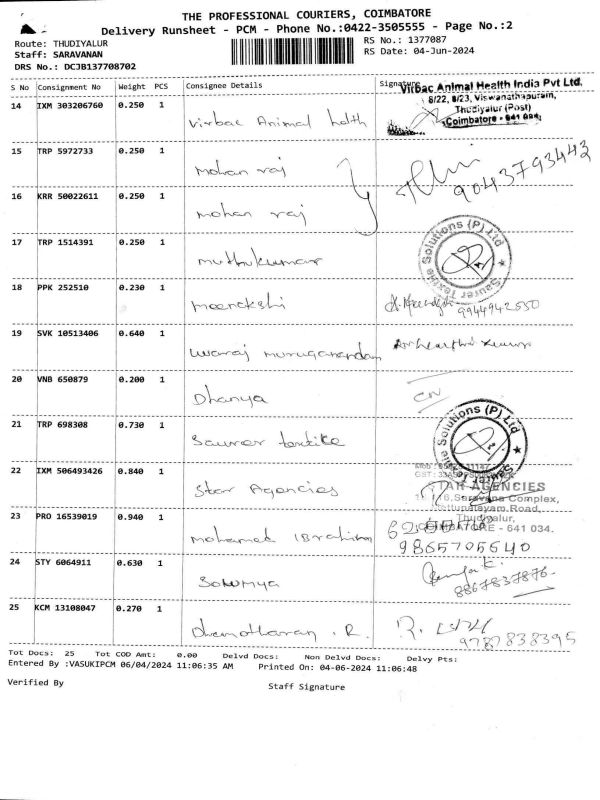 THE PROFESSIONAL COURIERS, COIMBATORE
Delivery Runsheet - PCM - Phone No.:0422-3505555 - Page No.:2
Route: THUDIYALUR
RS No.: 1377087
Staff: SARAVANAN
RS Date: 04-Jun-2024
DRS No.: DCJB137708702
S No Consignment No Weight PCS Consignee Details Signature
Virbac Animal Health India Pvt Ltd.
8/22, 8/23, Viswanathapuram,
Thudiyalur (Post)
Coimbatore - 641 034.
14 IXM 303206760 0.250 1 Virbac Animal halth
15 TRP 5972733 0.250 1 mohan raj 9043793443
16 KRR 50022611 0.250 1 mohan raj
17 TRP 1514391 0.250 1 muthukumar
Saurer Textile Solutions (P) Ltd
18 PPK 252510 0.230 1 meenakshi
19 SVK 10513406 0.640 1 uvaraj muruganandam
20 VNB 650879 0.200 1 Dhanya
21 TRP 698308 0.730 1 Saurer textile
Solutions (P) Ltd
22 IXM 506493426 0.840 1 Star Agencies
STAR AGENCIES
Saravana Complex,
Mettupalayam Road,
Thudiyalur,
COIMBATORE - 641 034.
23 PRO 16539019 0.940 1 mohamed Ibrahim
9865705640
24 STY 6064911 0.630 1 Sowmya
8867837876
25 KCM 13108047 0.270 1 Dhamotharan . R.
9787838395
Tot Docs: 25 Tot COD Amt: 0.00 Delvd Docs: Non Delvd Docs: Delvy Pts:
Entered By :VASUKIPCM 06/04/2024 11:06:35 AM Printed On: 04-06-2024 11:06:48
Verified By
Staff Signature